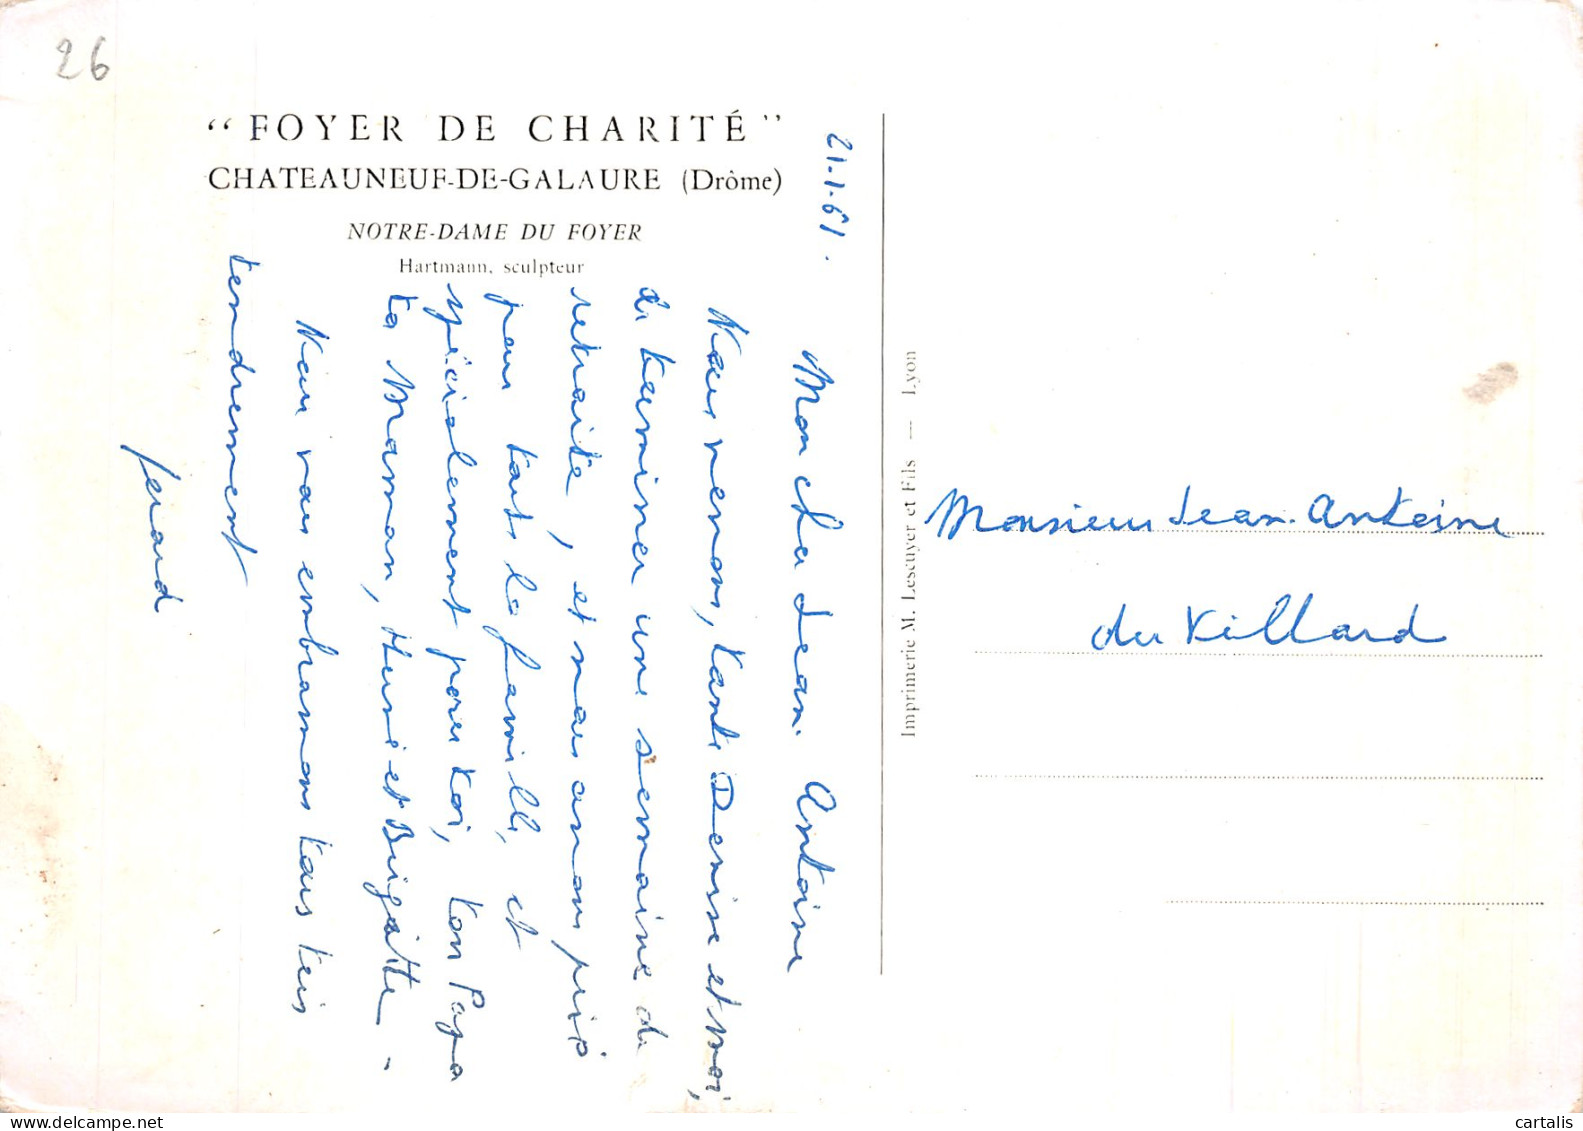 26
“ FOYER DE CHARITÉ ”
CHATEAUNEUF-DE-GALAURE (Drôme)
NOTRE-DAME DU FOYER
Hartmann, sculpteur
21-1-61.
Mon cher Jean-Antoine
Nous venons, tante Denise et moi,
de terminer une semaine de
retraite, et nous avons prié
pour toute la famille, et
spécialement pour toi, ton Papa
ta Maman, et Brigitte -
Nous vous embrassons tous très
tendrement
Imprimerie M. Lescuyer et Fils — Lyon
Monsieur Jean-Antoine
du Villard
cartalis
www.delcampe.net